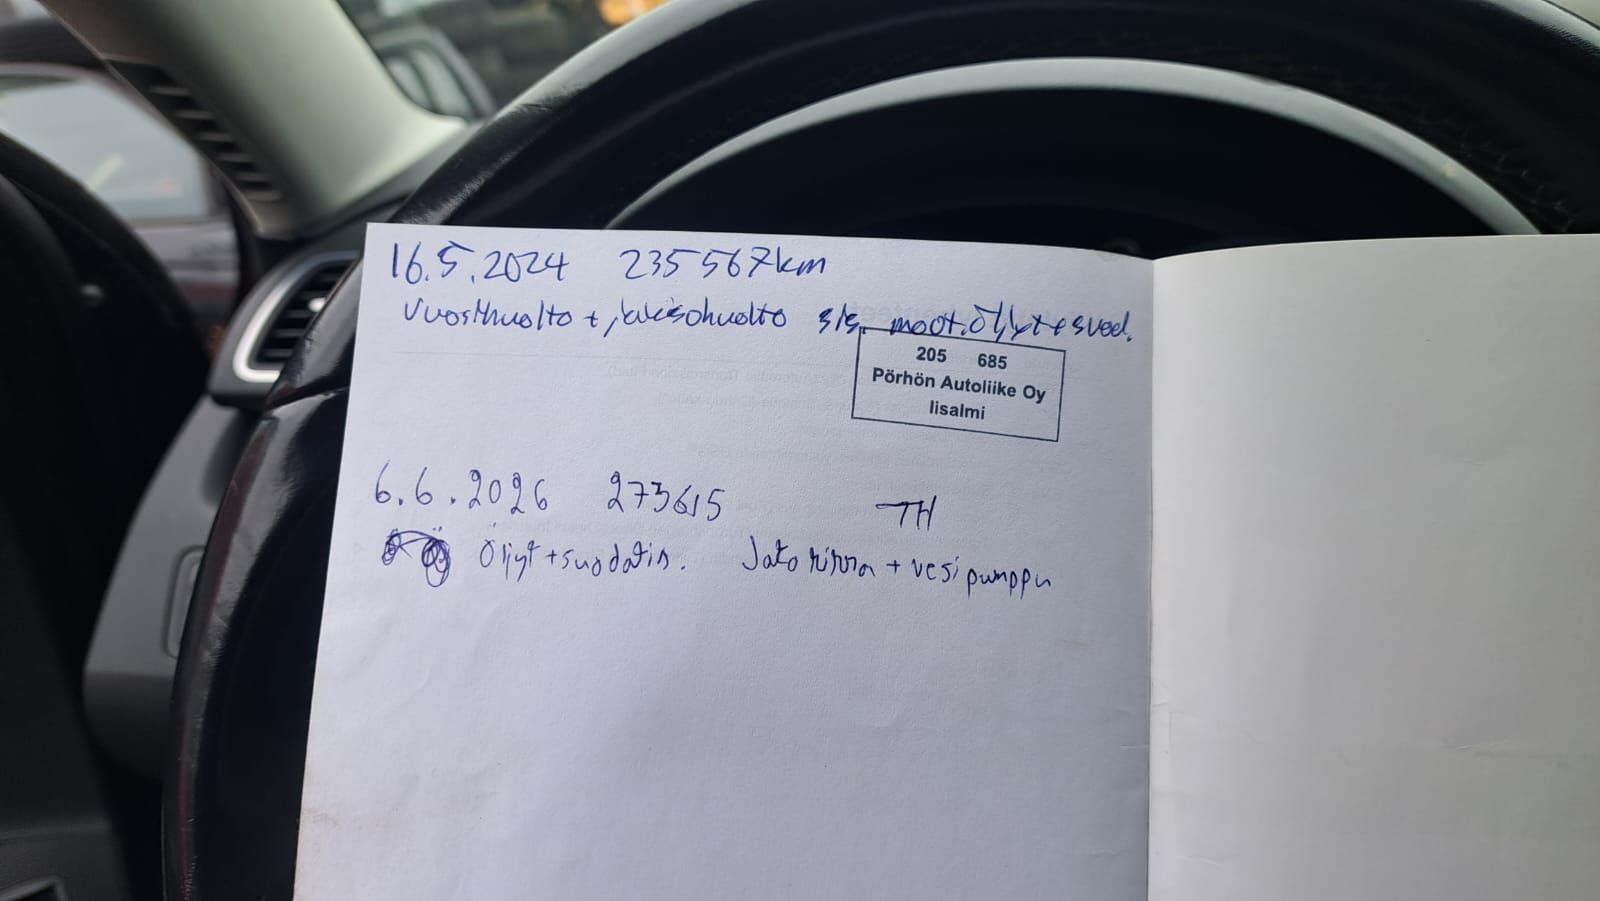 16.5.2024 235 567km
Vuosihuolto + jakisohuolto sis. moot.öljyt+suod.
205 685
Pörhön Autoliike Oy
Iisalmi
6.6.2026 273615 TH
Öljyt+suodatin. Jakohihna + vesipumppu